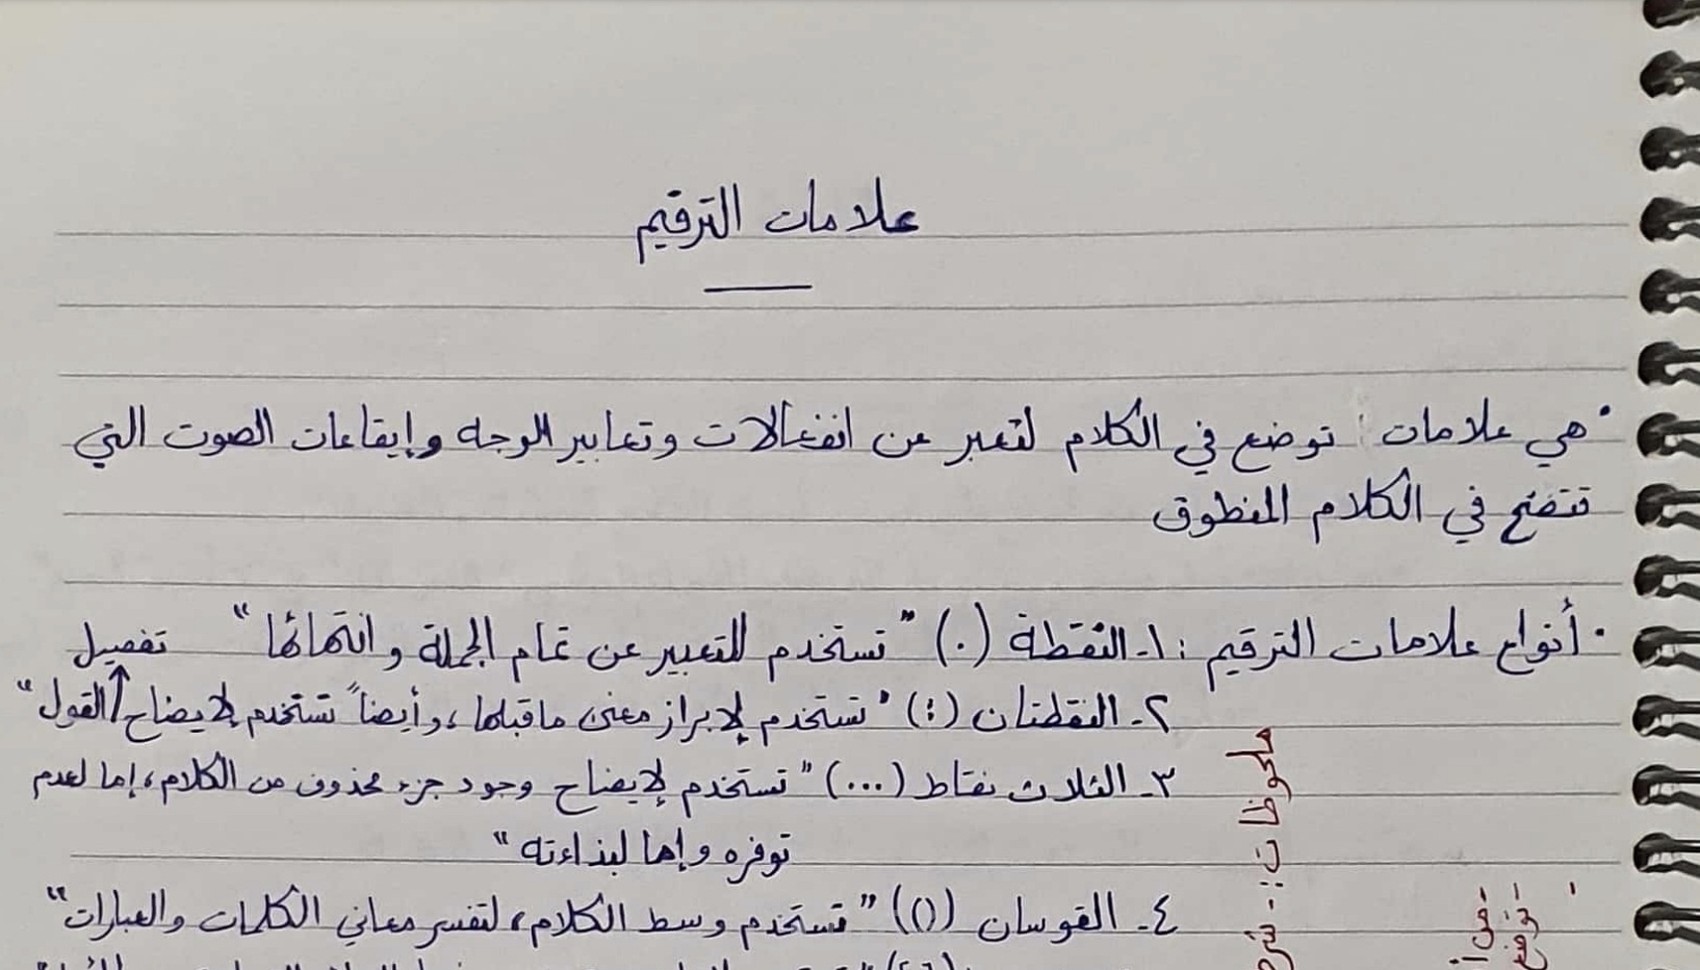 علامات الترقيم
• هي علامات توضع في الكلام لتعبر عن انفعالات وتعابير الوجه وإيقاعات الصوت التي
تتضح في الكلام المنطوق
• أنواع علامات الترقيم : ١- النقطة (.) "تستخدم للتعبير عن تمام الجملة وانتهائها"
٢- النقطتان (:) "تستخدم لإبراز معنى ما قبلها، وأيضاً تستخدم لإيضاح تفصيل القول"
٣- الثلاث نقاط (...) "تستخدم لإيضاح وجود جزء محذوف من الكلام، إما لعدم
توفره وإما لبذاءته"
٤- القوسان () "تستخدم وسط الكلام، لتفسر معاني الكلمات والعبارات"
ملحوظات :-